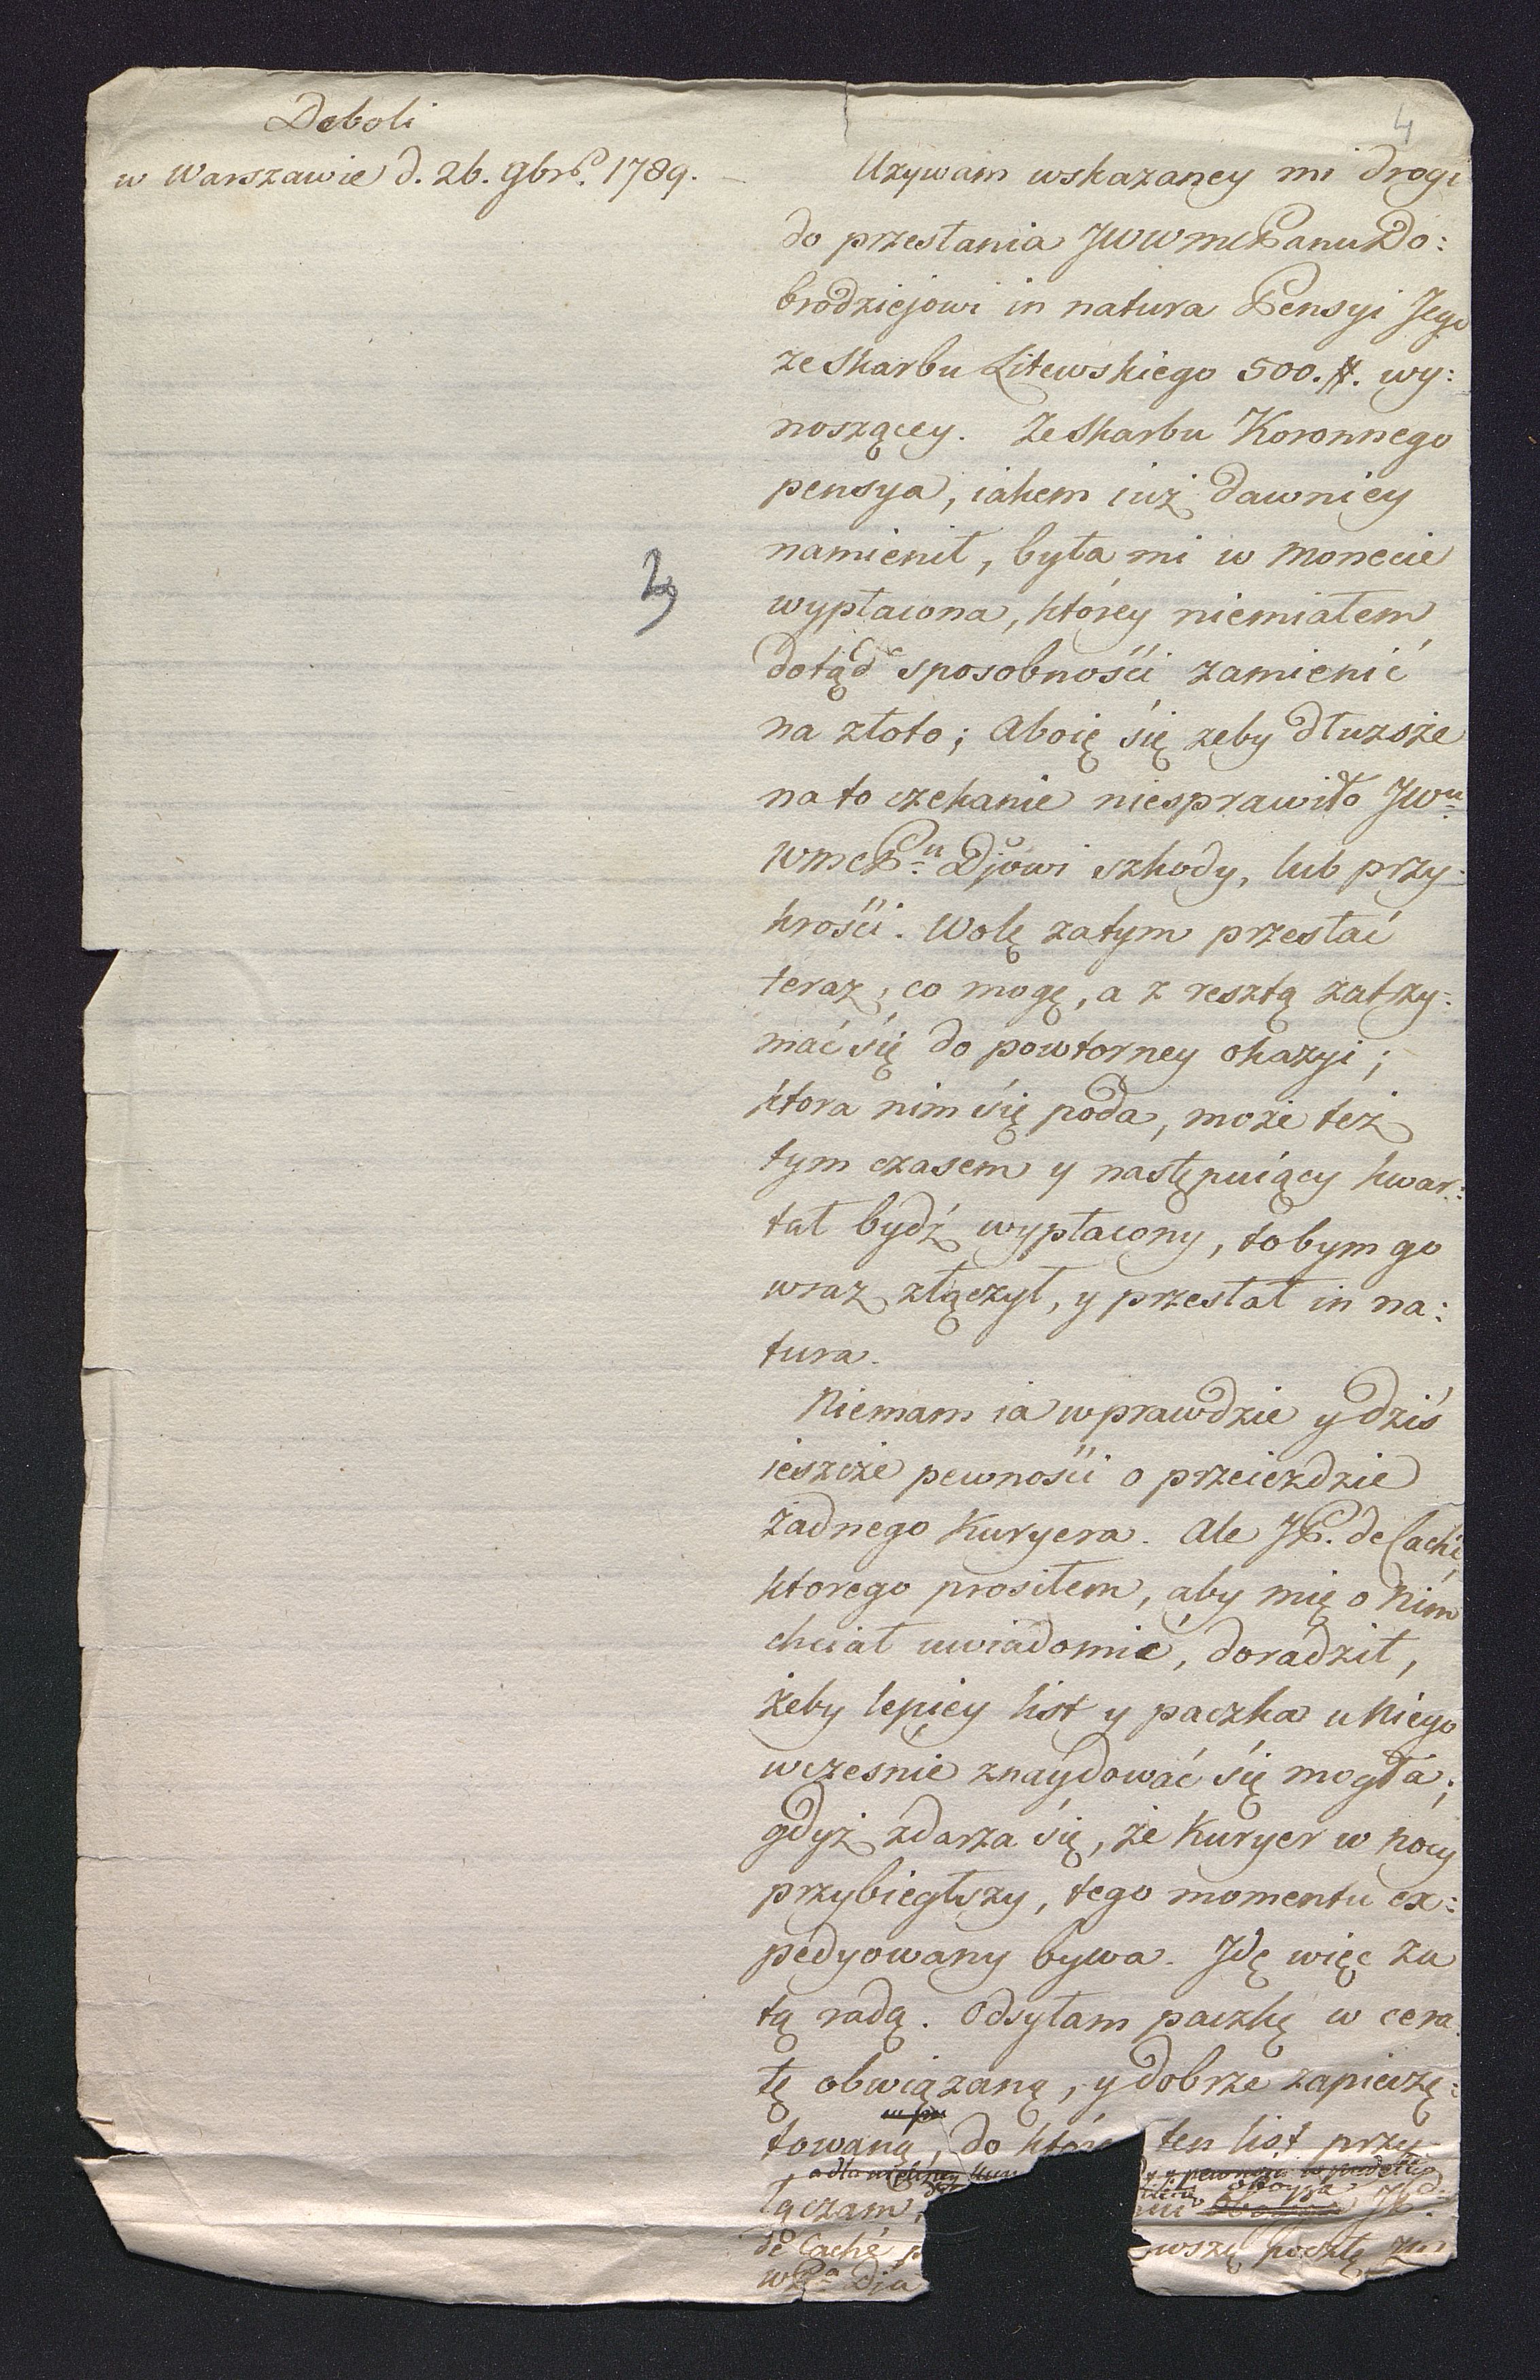 Deboli
w Warszawie d. 26. 9brs. 1789.
4
Używam wskazaney mi drogi
do przesłania JWWmcPanu Do:
brodziejowi in natura Pensyi Jego
ze Skarbu Litewskiego 500. #. wy:
noszącey. Ze Skarbu Koronnego
pensya, iakem iuż dawniey
namienił, była mi w monecie
wypłacona, którey niemiałem
dotąd sposobności zamienić
na złoto; Aboię się żeby dłuższe
na to czekanie niesprawiło JWu
WmcPu Djowi szkody, lub przy:
krości. Wolę zatym przesłać
teraz, co mogę, a z resztą zatrzy:
mać się do powtorney okazyi;
ktora nim się poda, może też
tym czasem y następuiący kwar:
tał bydź wypłacony, tobym go
wraz złączył, y przesłał in na:
tura.
Niemam ia wprawdzie y dziś
ieszcze pewności o przeieździe
żadnego Kuryera. Ale JP. de Caché
ktorego prosiłem, aby mię o nim
chciał uwiadomić, doradził,
żeby lepiey list y paczka u niego
wcześnie znaydować się mogła;
gdyż zdarza się, że Kuryer w nocy
przybiegłszy, tego momentu ex:
pedyowany bywa. Jdę więc za
tą radą. Odsyłam paczkę w cera
tę obwiązaną, y dobrze zapieczę:
towaną, do któr ten list przy
y pewności w pudełku
łączam, JP.
de Caché p wszą pocztę
WPa Dja
2